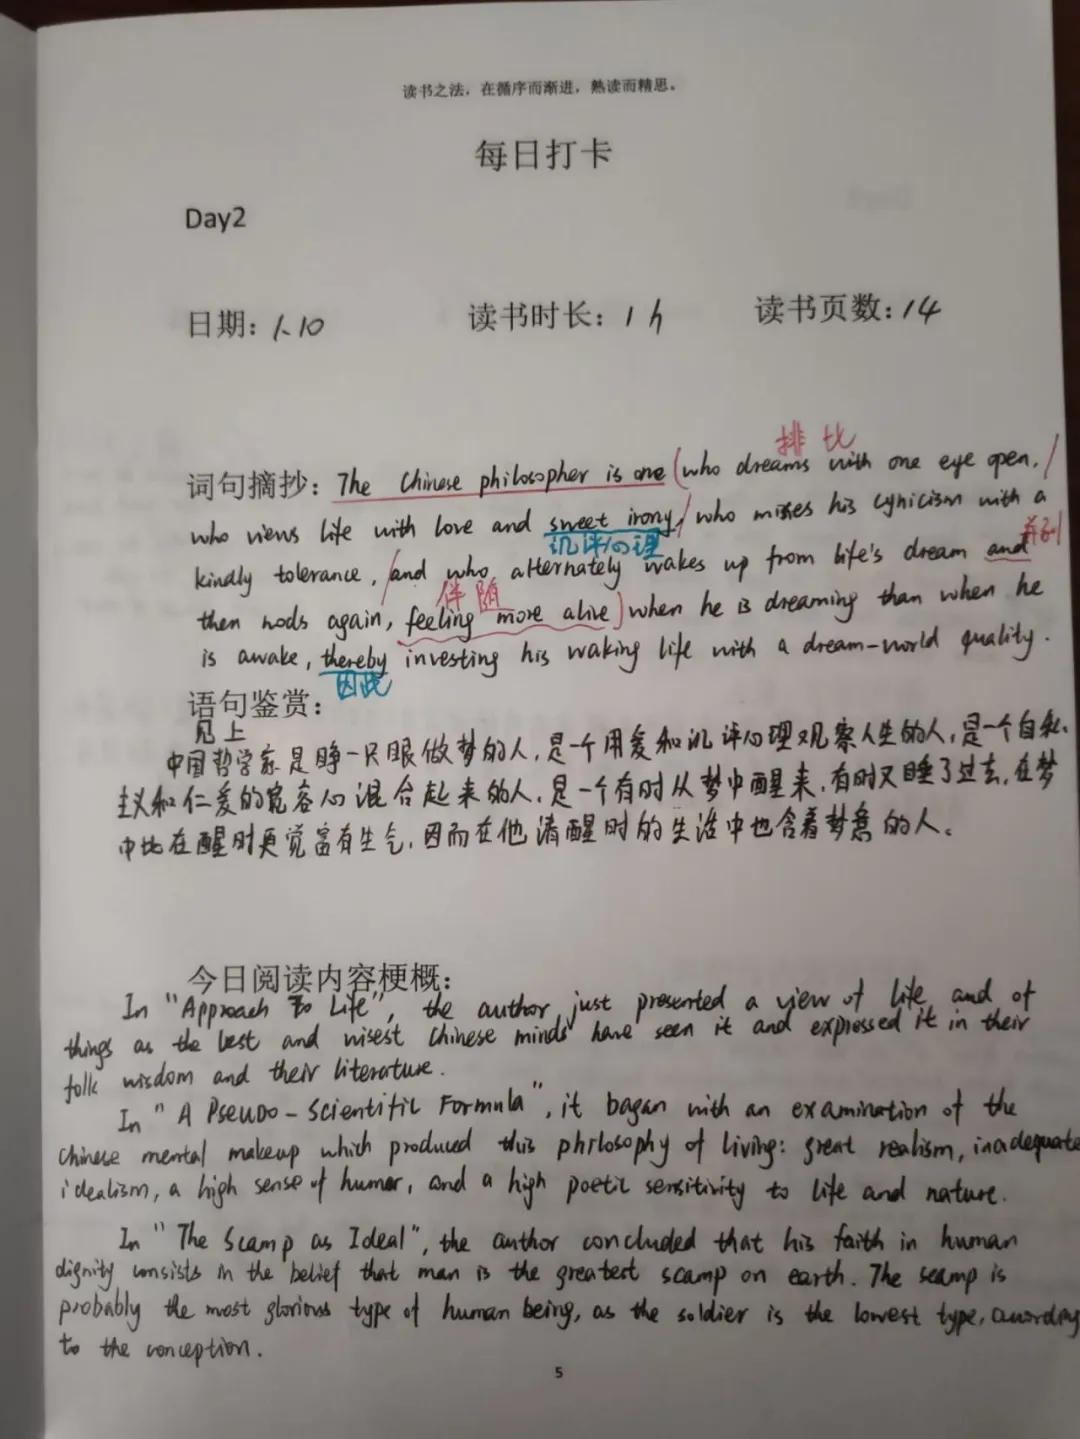 读书之法，在循序而渐进，熟读而精思。
每日打卡
Day2
日期：1.10 读书时长：1h 读书页数：14
排比
词句摘抄：The Chinese philosopher is one (who dreams with one eye open, /
who views life with love and sweet irony, / who mixes his cynicism with a
讥评心理 并列
kindly tolerance, / and who alternately wakes up from life's dream and
伴随
then nods again, feeling more alive) when he is dreaming than when he
is awake, thereby investing his waking life with a dream-world quality.
因此
语句鉴赏：
见上
中国哲学家是睁一只眼做梦的人，是一个用爱和讥评心理观察人生的人，是一个自私
主义和仁爱的宽容心混合起来的人，是一个有时从梦中醒来，有时又睡了过去，在梦
中比在醒时更觉富有生气，因而在他清醒时的生活中也含着梦意的人。
今日阅读内容梗概：
In "Approach To Life", the author just presented a view of life and of
things as the best and wisest Chinese minds have seen it and expressed it in their
folk wisdom and their literature.
In "A Pseudo-Scientific Formula", it bagan with an examination of the
Chinese mental makeup which produced this philosophy of living: great realism, inadequate
idealism, a high sense of humor, and a high poetic sensitivity to life and nature.
In "The Scamp as Ideal", the author concluded that his faith in human
dignity consists in the belief that man is the greatest scamp on earth. The scamp is
probably the most glorious type of human being, as the soldier is the lowest type, according
to the conception.
5